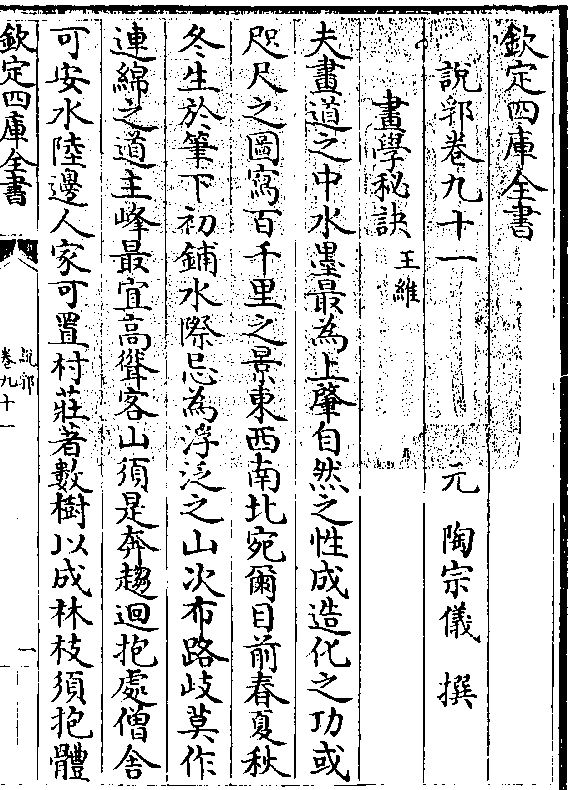 欽定四庫全書
說郛卷九十一　元　陶宗儀　撰
畫學秘訣　王維
夫畫道之中水墨最為上肇自然之性成造化之功或
咫尺之圖寫百千里之景東西南北宛爾目前春夏秋
冬生於筆下初鋪水際忌為浮泛之山次布路歧莫作
連綿之道主峰最宜高聳客山須是奔趨迴抱處僧舍
可安水陸邊人家可置村莊著數樹以成林枝須抱體
欽定四庫全書
說郛
卷九十一
一